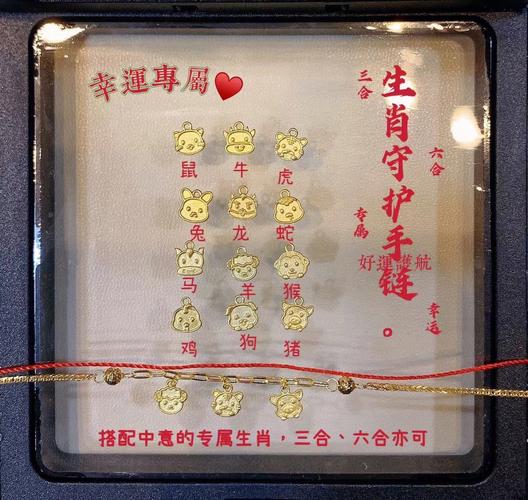 幸運專屬
三合
生肖守护手链。
六合
专属
好運護航
幸运
鼠 牛 虎
兔 龙 蛇
马 羊 猴
鸡 狗 猪
搭配中意的专属生肖，三合、六合亦可